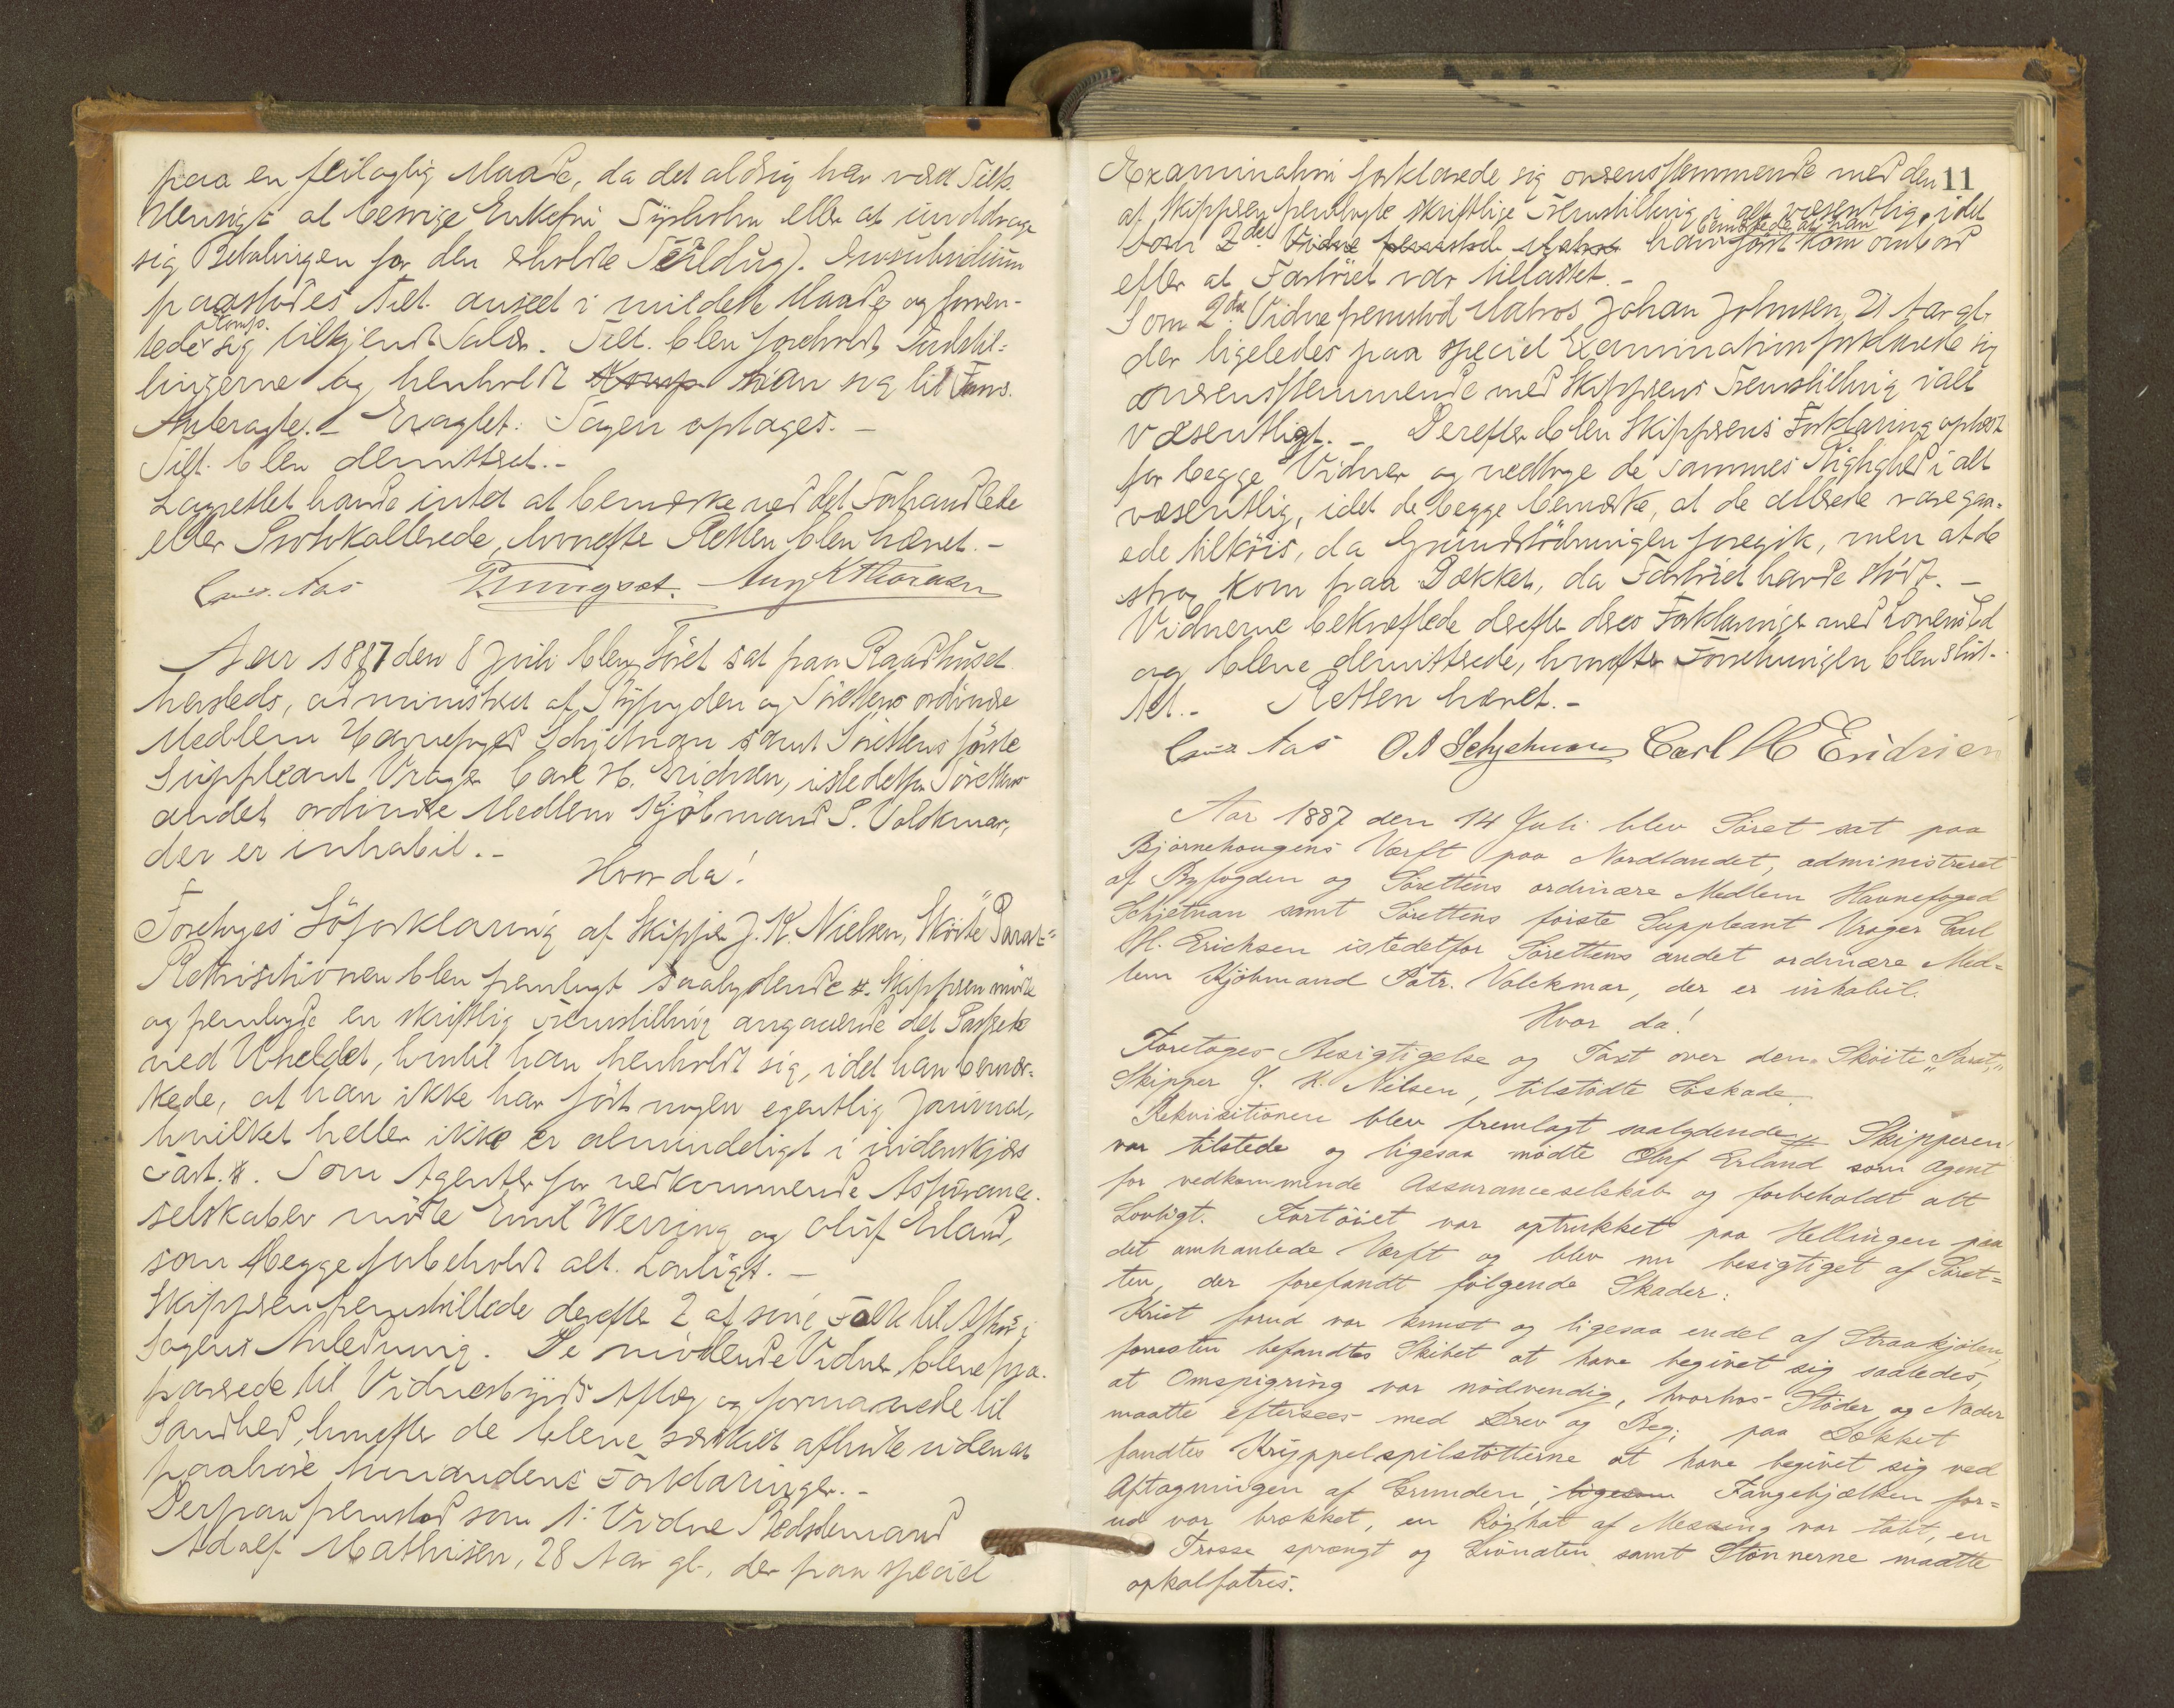 paa en feilagtig Maade, da det aldrig har været Tilt.
Mening at besvige Enkefru Syrholm eller at unddrage
sig Betalingen for den erholdte Seildug). Insubsidium
paastodes Tilt. anseet i mildeste Maade og forven-
tede Comp. sig tilkjendt Salær. Tilt. blev foreholdt Indstil-
lingerne og henholdt Komp han sig til Def.s
Anbragte. - Eragtet: Sagen optages. -
Tilt. blev demitteret. -
Lagrettet havde intet at bemærke ved det Forhandlede
eller Protokollerede, hvorefter Retten blev hævet. -
Chr. Aas
Aar 1887 den 8 Juli blev Søret sat paa Raadhuset
hersteds, administreret af Byfogden og Sørettens ordinære
Medlem Havnefoged Schjetnan samt Sørettens første
Suppleant Vrager Carl H. Erichsen, istedetfor Sørettens
andet ordinære Medlem Kjøbmand P. Volckmar,
der er inhabil. -
Hvor da!
Foretoges Søforklaring af Skipper J. K. Nielsen, Skøite "Parat"
Rekvisitionen blev fremlagt saalydende #. Skipperen mødte
og fremlagde en skriftlig Fremstilling angaaende det Passerede
ved Uheldet, hvortil han henholdt sig, idet han bemær-
kede, at han ikke har ført nogen egentlig Journal,
hvilket heller ikke er almindeligt i indenskjærs
Fart. #. Som Agenter for vedkommende Assurance-
selskaber mødte Emil Werring og Oluf Erland,
som begge forbeholdt alt Lovligt. -
Skipperen fremstillede derefter 2 af sine Folk til Afhør i
Sagens Anledning. De mødende Vidner bleve præ-
parerede til Vidnesbyrds Aflæg og formanede til
Sandhed, hvorefter de bleve særskilt afhørte uden at
paahøre hinandens Forklaringer. -
Derpaa fremstod som 1. Vidne Bedstemand
Adolf Mathisen, 28 Aar gl., der paa speciel
11
Examination forklarede sig overensstemmende med den
af Skipperen fremlagte skriftlige Fremstilling i alt væsentlig, idet
Som 2det Vidne fremstod Matros han bemærkede at han først kom ombord
efter at Fartøiet var tillastet. -
Som 2det Vidne fremstod Matros Johan Johnsen, 21 Aar gl.
der ligeledes paa speciel Examination forklarede sig
overensstemmende med Skipperens Fremstilling i alt
væsentligt. - Derefter blev Skipperens Forklaring oplæst
for begge Vidner og vedtoge de sammes Rigtighed i alt
væsentlig, idet de begge bemærke, at de allerede vare gaa-
ede tilkøis, da Grundstødningen foregik, men at de
strax kom paa Dækket, da Fartøiet havde stødt. -
Vidnerne bekræftede derefter deres Forklaringer med Lovens Ed
og bleve demitterede, hvorefter Forretningen blev slut-
tet. - Retten hævet. -
Chr. Aas O. A. Schjetnan Carl H Erichsen
Aar 1887 den 14 Juli blev Søret sat paa
Bjørnehougens Værft paa Nordlandet, administreret
af Byfogden og Sørettens ordinære Medlem Havnefoged
Schjetnan samt Sørettens første Suppleant Vrager Carl
H. Erichsen istedetfor Sørettens andet ordinære Med-
lem Kjøbmand Patr. Volckmar, der er inhabil.
Hvor da!
Foretoges Besigtigelse og Taxt over den Skøite "Parat",
Skipper J. K. Nilsen, tilstødte Søskade.
Rekvisitionen blev fremlagt saalydende # Skipperen
var tilstede og ligesaa mødte Oluf Erland som Agent
for vedkommende Assuranceselskab og forbeholdt alt
Lovligt. Fartøiet var optrukket paa Hellingen paa
det omhandlede Værft og blev nu besigtiget af Søret-
ten, der forefandt følgende Skader:
Knæet forud var knust og ligesaa endel af Straakjølen,
foresten befandtes Skibet at have begivet sig saaledes,
at Omspigring var nødvendig, hvorhos Støder og Nader
maatte eftersees med Drev og Beg; paa Dækket
fandtes Kryppelspilstøtterne at have begivet sig ved
Aftagningen af Grunden, ligesom Fangebjælken for-
ud var brækket, en Røghat af Messing var tabt, en
Trosse sprængt og Livnaten samt Stønnerne maatte
opkalfatres.